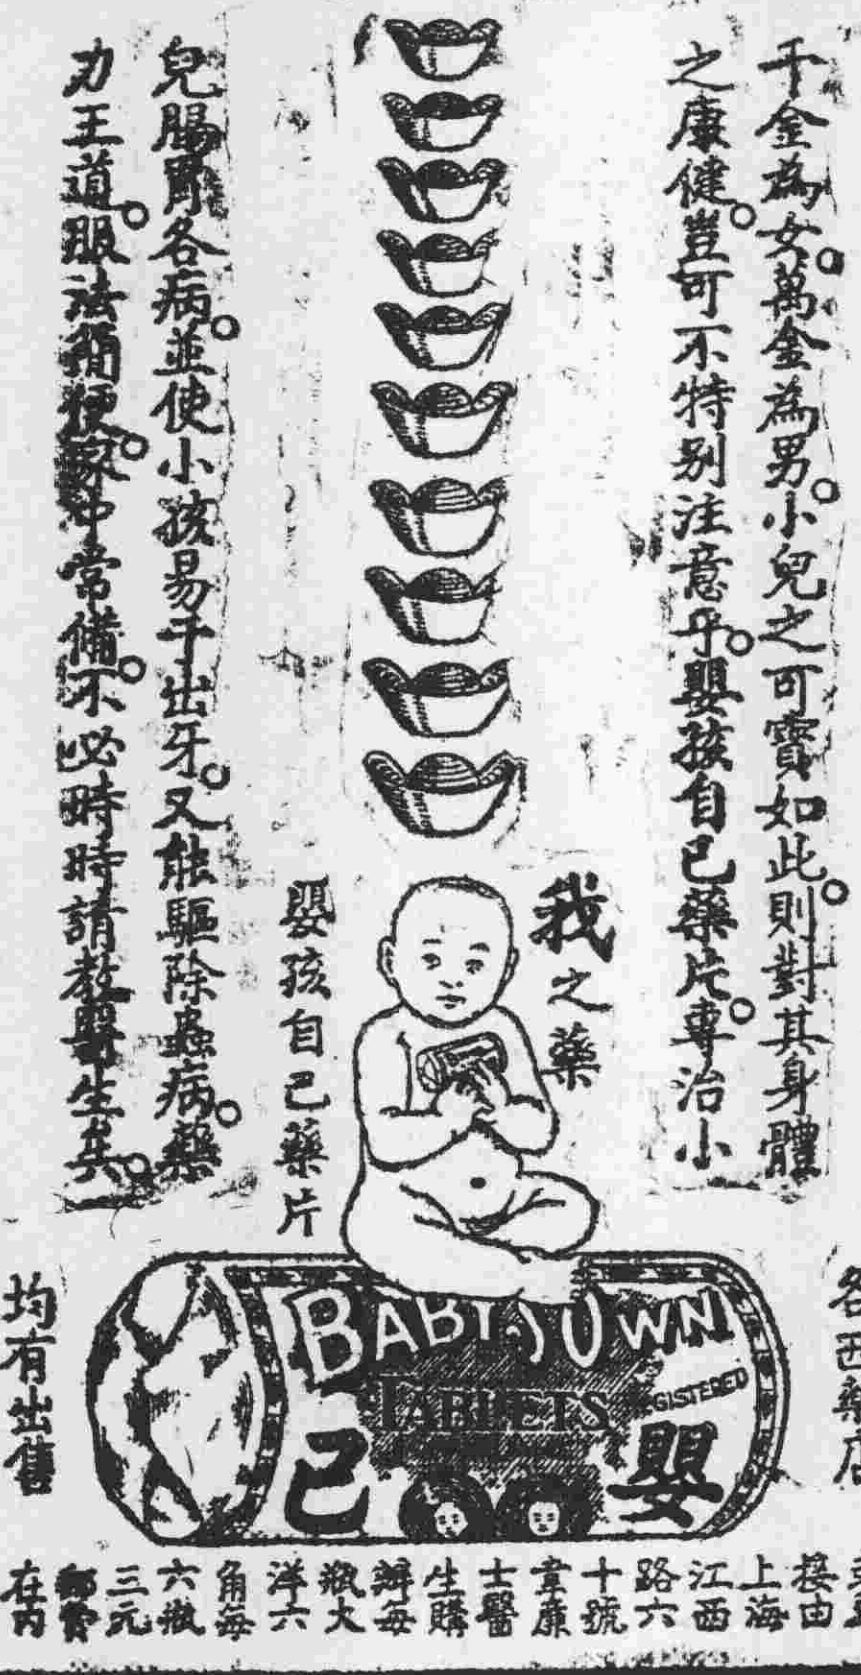 千金為女。萬金為男。小兒之可寶如此。則對其身體
之康健。豈可不特別注意乎。嬰孩自己藥片。專治小
我之藥
嬰孩自己藥片
兒腸胃各病。並使小孩易于出牙。又能驅除蟲病。藥
力王道。服法簡便。家中常備。不必時時請教醫生矣。
各西藥店
均有出售
BABY'S OWN
TABLETS
REGISTERED
嬰
己
接由
上海
江西
路六
十號
韋廉
士醫
生購
辦每
瓶大
洋六
角每
六瓶
三元
郵費
在內